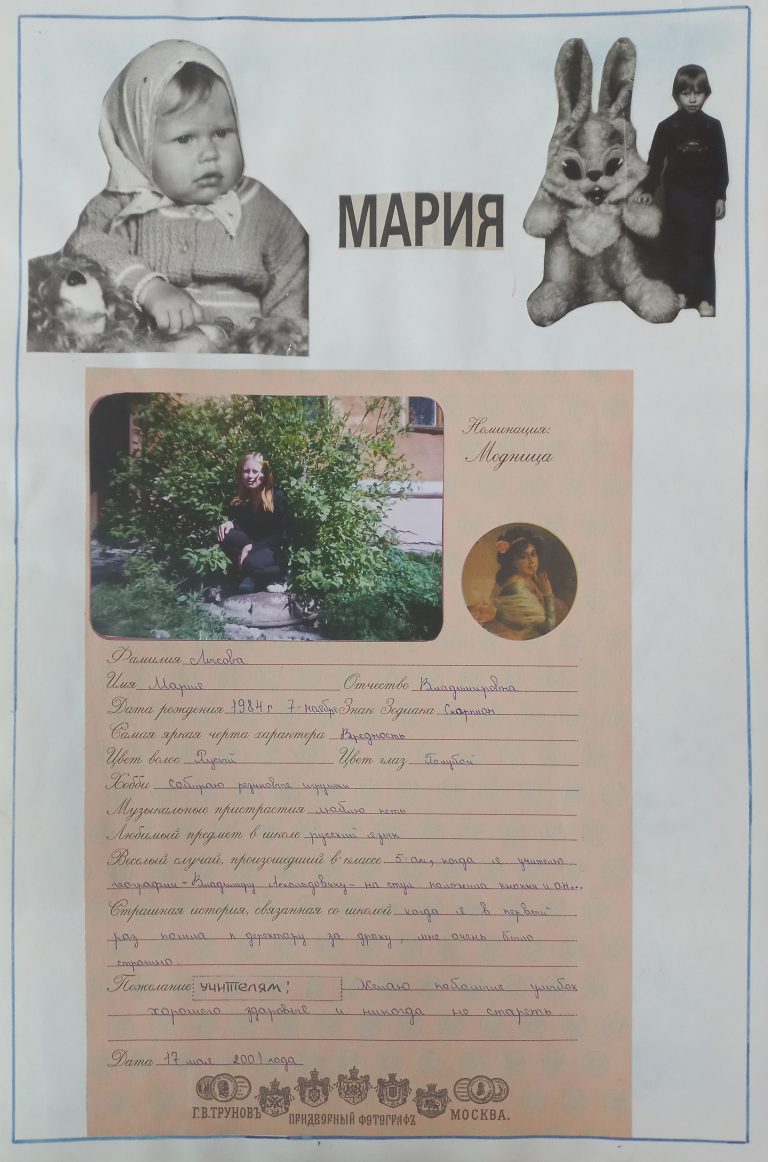 МАРИЯ
Номинация:
Модница
Фамилия Лысова
Имя Мария Отчество Владимировна
Дата рождения 1984 г 7-ноября Знак Зодиака Скарпион
Самая яркая черта характера Вредность
Цвет волос Русый Цвет глаз Голубой
Хобби собираю резиновые игрушки
Музыкальные пристрастия люблю петь
Любимый предмет в школе русский язык
Веселый случай, произошедший в классе 5-ом, когда я учителю
географии - Владимиру - на стул положила кнопки и он...
Страшная история, связанная со школой когда я в первый
раз пошла к деректору за драку, мне очень было
страшно.
Пожелание учителям! Желаю побольше улыбок
хорошего здоровье и никогда не стареть
Дата 17 мая 2001 года
Г.В.ТРУНОВЪ ПРИДВОРНЫЙ ФОТОГРАФЪ МОСКВА.